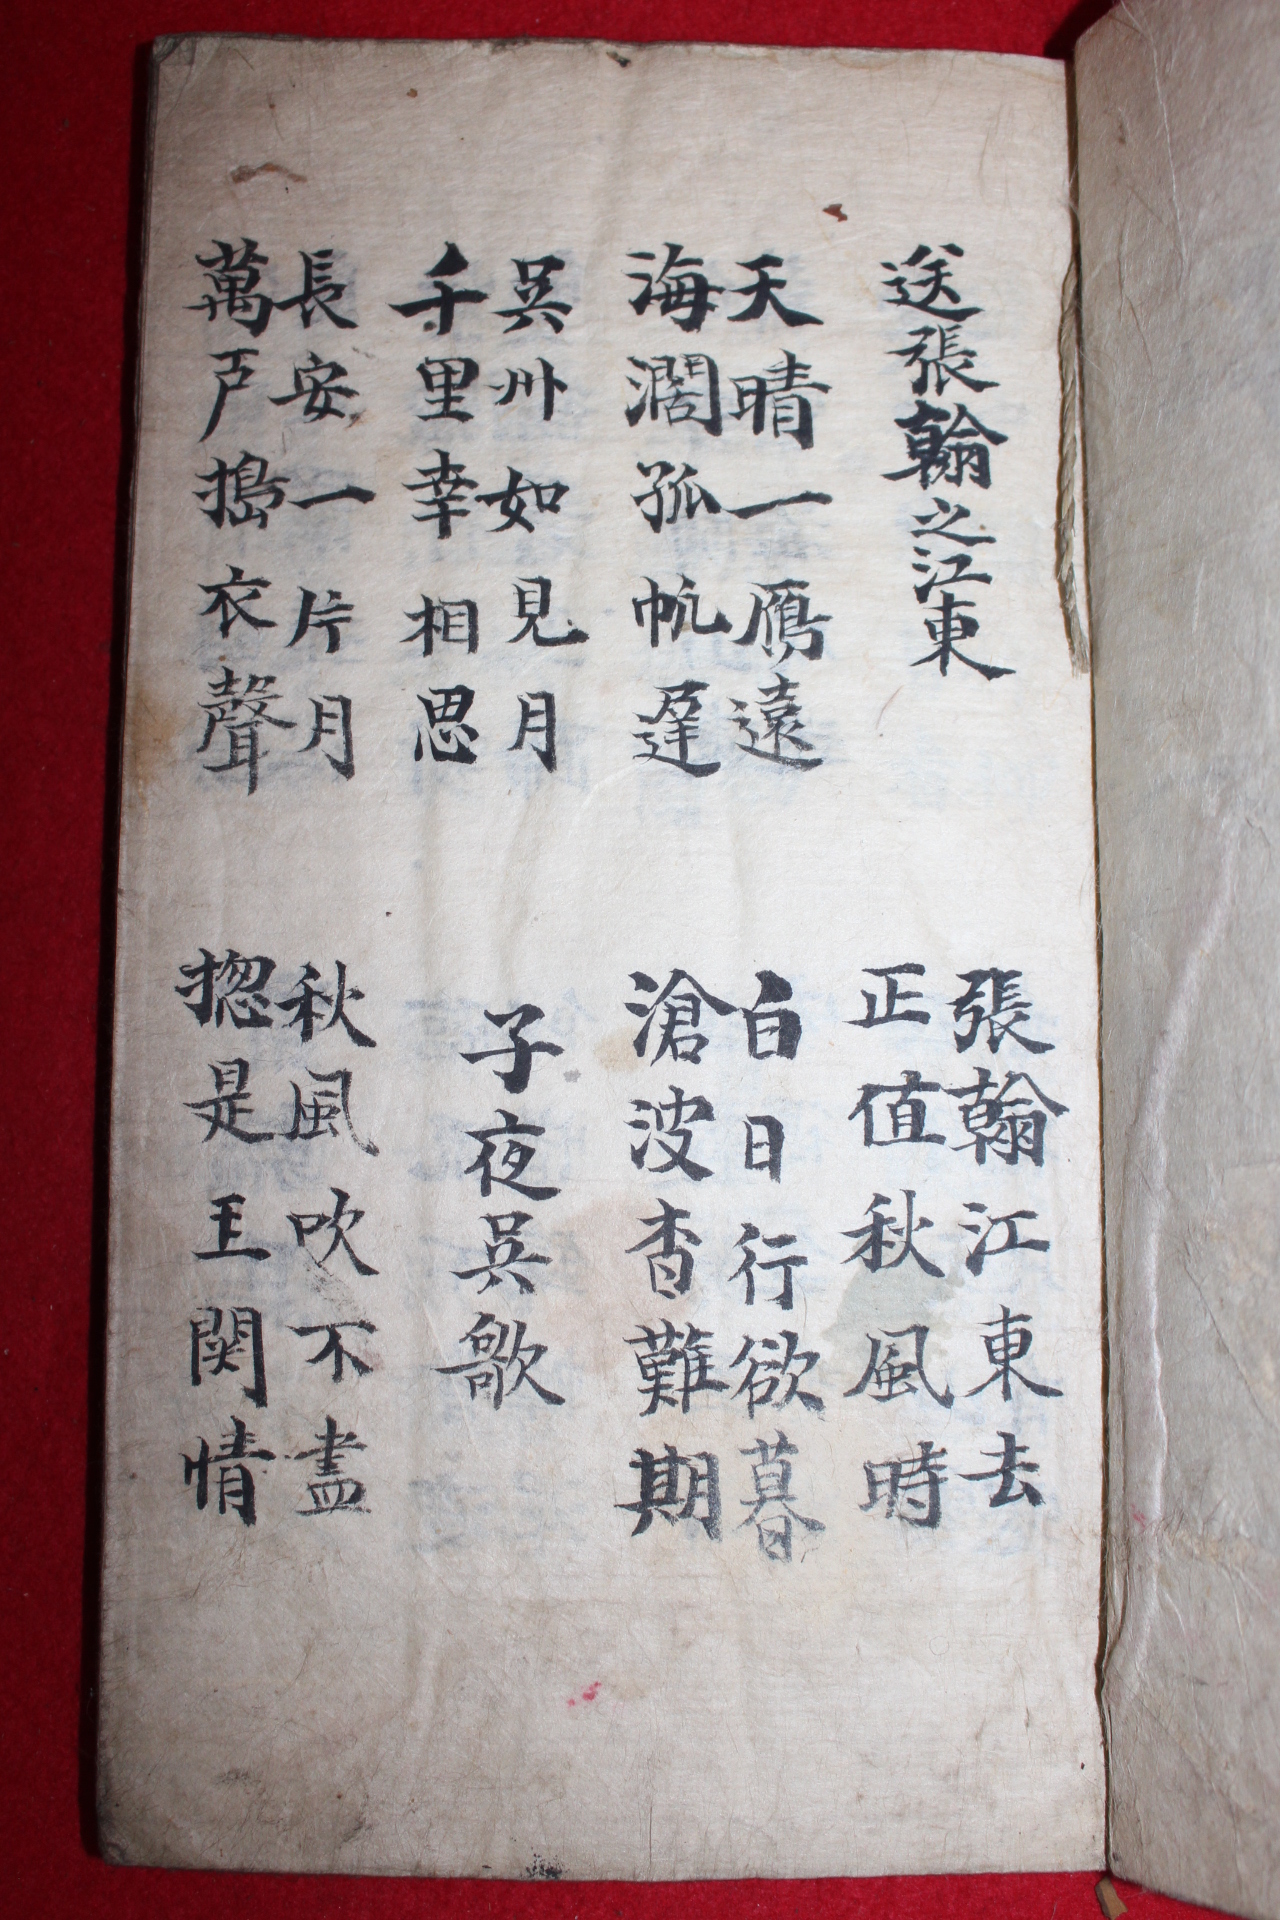 送張翰之江東
張翰江東去
正值秋風時
天晴一鴈遠
海濶孤帆遅
白日行欲暮
滄波杳難期
呉州如見月
千里幸相思
子夜呉歌
長安一片月
萬戶搗衣聲
秋風吹不盡
揔是玉関情